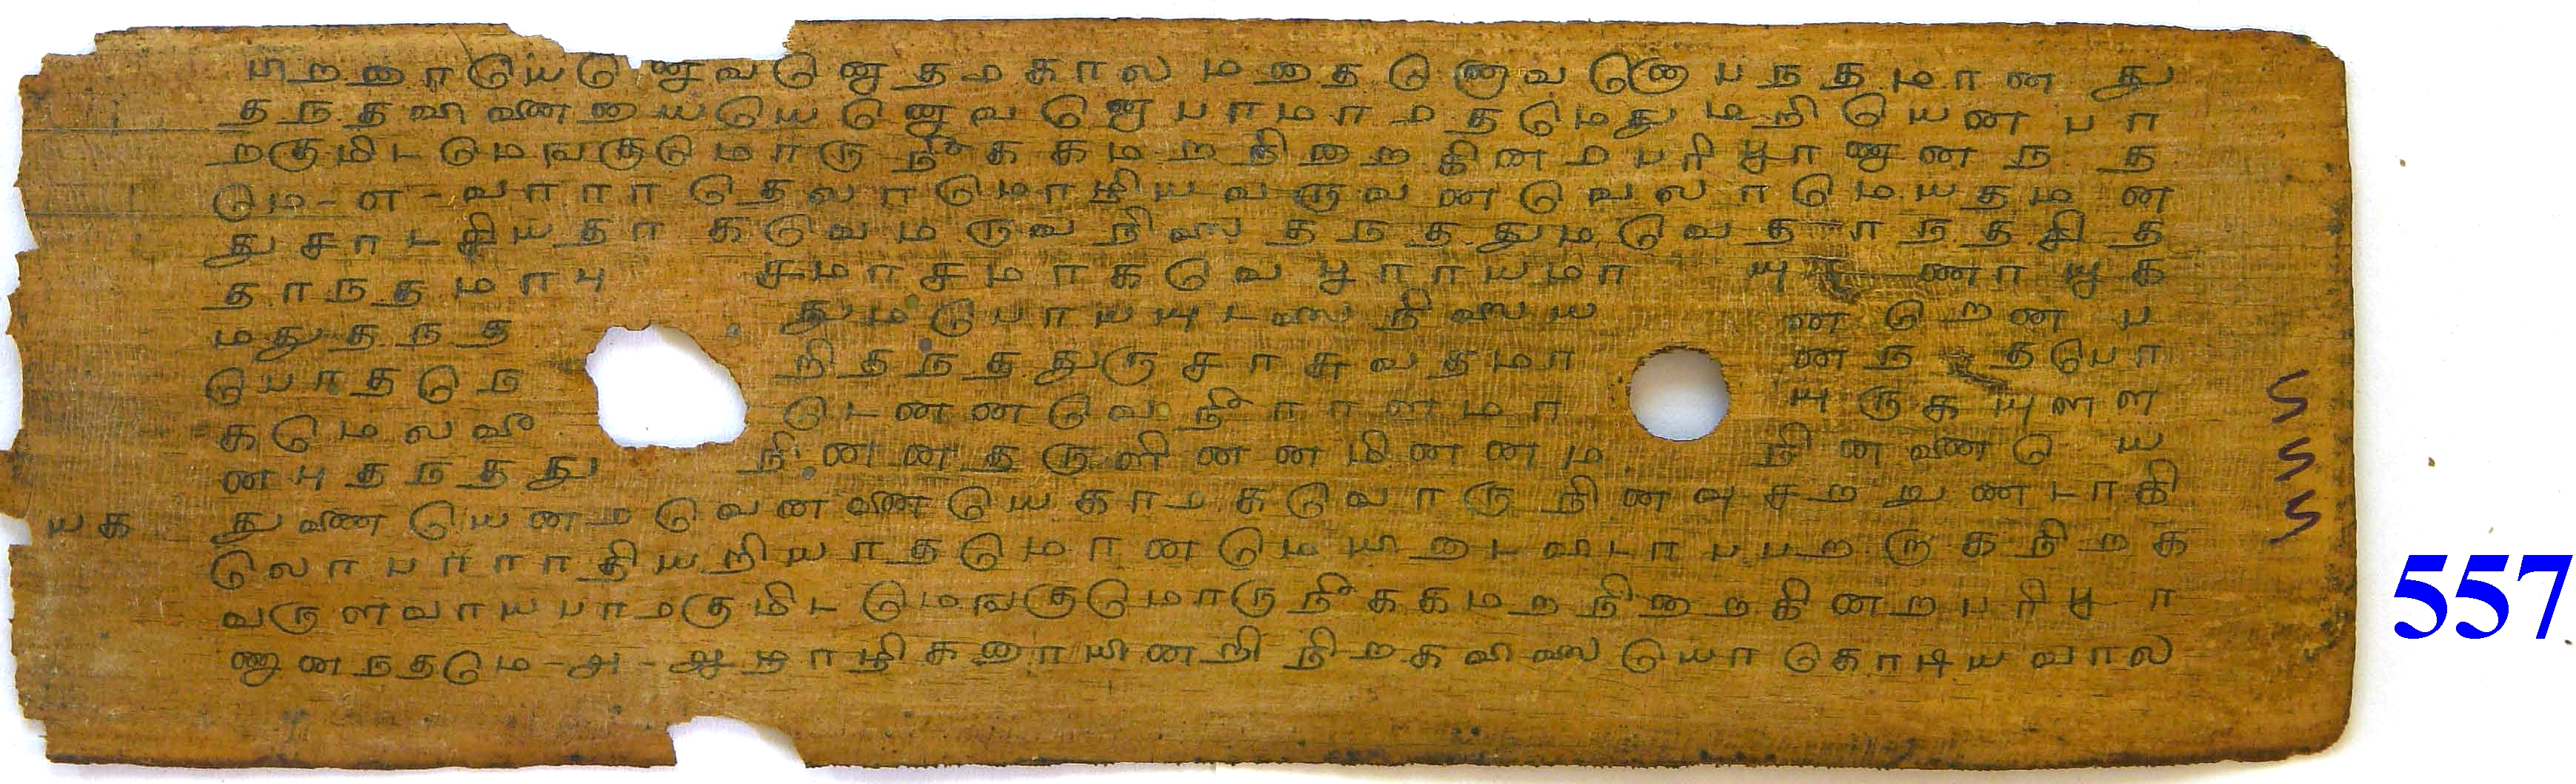 பிறறைாயெனுவனெுதமகாலமதைதெணுவனெபநதமான து
தநதவிவணறையயெயெனுவனெுபாமாமதமெதுமறியென பா
றகுமிடமெஙகுமொருநீககமறநிறைறகினமபரிபூரணன ந த
மெ-ள-வாரா தெலாமொழியவருவணவெலாமெயதம ன
து சாடசியதாகவெமருவநிலை தநததுமவெதாநத சித
தாநதமாபு சமாசமாகவெபூராயமா யுந ணாயுக
மதுதநத துமபொயயுடலைநிலைய னறென ப
யொதநெ றிதநததுருசாசுவதமா னந தபொ
கமெலவீ டெனனவெநீரானமா யுருகயுளள
னபுதநதது நினனதருளினனமினனம நினவணெ ய
யக துவணெயனமவெனவணயெகாமகவொருநினவுசறறுணடாகி
லொபாராதியறியாதமொனமெயிடைவிடாபபறருகநிறக
வருளவாயபாமகுமிடமெஙகுமொருநீககமறநிறைறகினறபரிபூ ர
ணனநதமெ-அ-ஆழாழிகரையினறிநிறகவிலையொகொடியவால
557